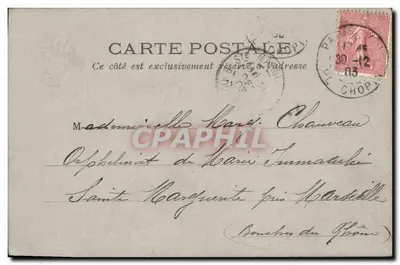 CARTE POSTALE
Ce côté est exclusivement réservé à l'adresse
PL. CHOPIN
30 -12
03
Mademoiselle Mary Chauveau
CPAPHIL
Orphelinat de Marie Immaculée
Sainte Marguerite près Marseille
(Bouches du Rhône)